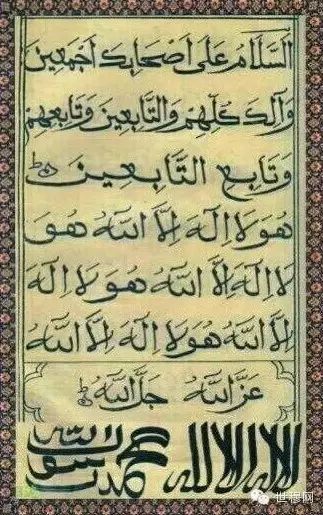 السَّلَامُ عَلَى اَصْحَابِكَ اَجْمَعِينَ
وَآلِكَ كُلِّهِمْ وَالتَّابِعِينَ وَتَابِعِهِمْ
وَتَابِعِ التَّابِعِينَ
هُوَ لَا اِلَهَ اِلَّا اللهُ هُوَ
لَا اِلَهَ اِلَّا اللهُ هُوَ لَا اِلَهَ
اِلَّا اللهُ هُوَ لَا اِلَهَ اِلَّا اللهُ
عَزَّ اللهُ جَلَّ اللهُ
لا اله الا الله محمد رسول الله
世穆网